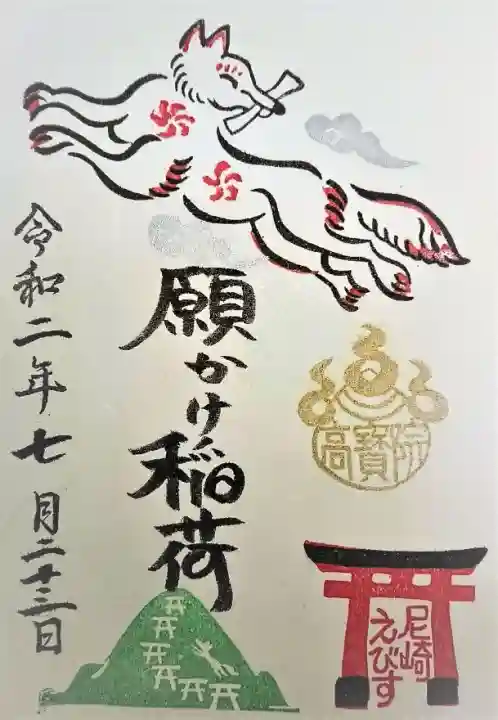 高寶院
尼崎
えびす
願かけ稲荷
令和二年七月二十三日